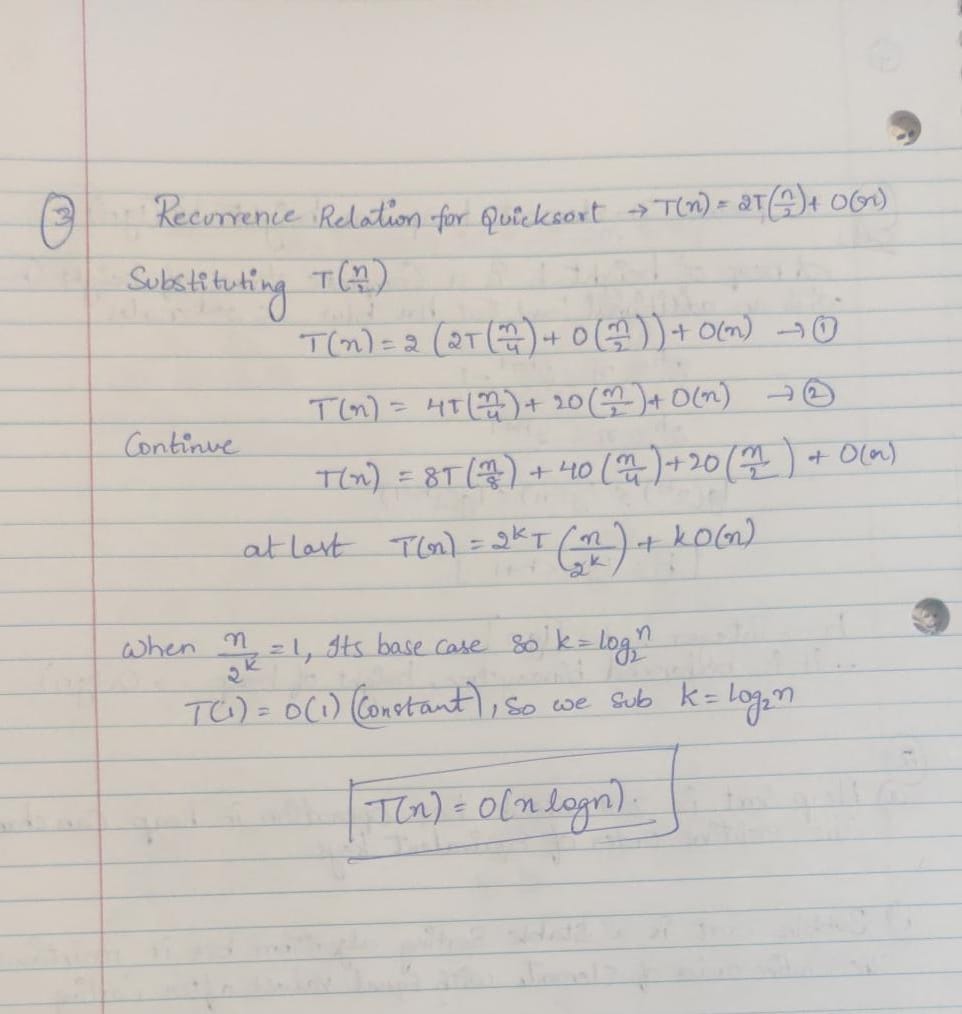 ③ Recurrence Relation for Quicksort → T(n) = 2T(n/2) + O(n)
Substituting T(n/2)
T(n) = 2 (2T(n/4) + O(n/2)) + O(n) → ①
T(n) = 4T(n/4) + 2O(n/2) + O(n) → ②
Continue
T(n) = 8T(n/8) + 4O(n/4) + 2O(n/2) + O(n)
at last T(n) = 2^k T(n/2^k) + kO(n)
When n/2^k = 1, Its base case so k = log₂n
T(1) = O(1) (Constant), So we sub k = log₂n
T(n) = O(n logn).